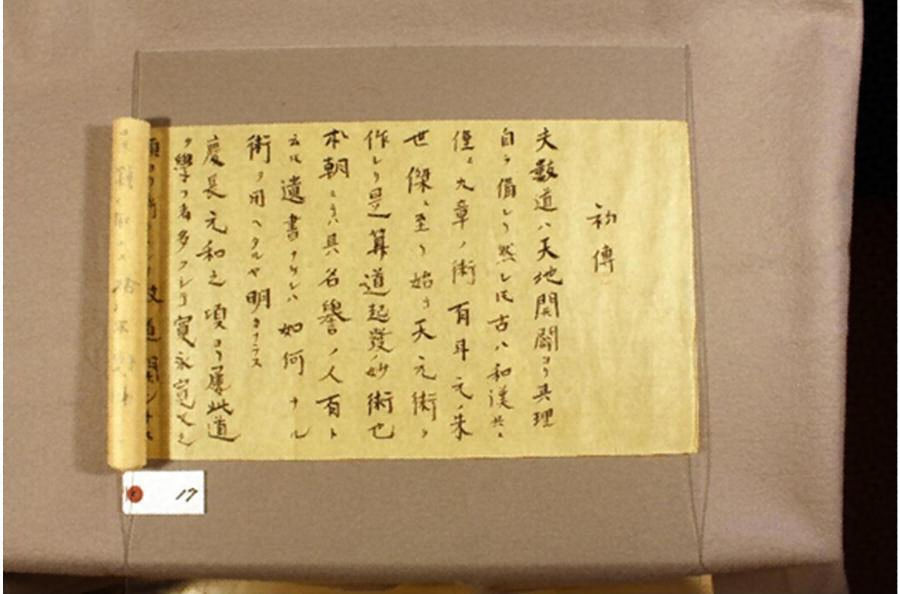 初傳
夫數道ハ天地開闢ヨリ其理
自ラ備レリ然レ𪜈古ハ和漢共ニ
僅ニ九章ノ術有耳元ノ朱
世傑ニ至リ始テ天元術ヲ
作レリ是算道起發ノ妙術也
本朝ニテハ其名譽ノ人有ト
云𪜈遺書ナケレハ如何ナル
術ヲ用ヘタルヤ明カナラス
慶長元和之頃ヨリ專此道
ヲ學フ者多クシテ寛永寛文之
道
17